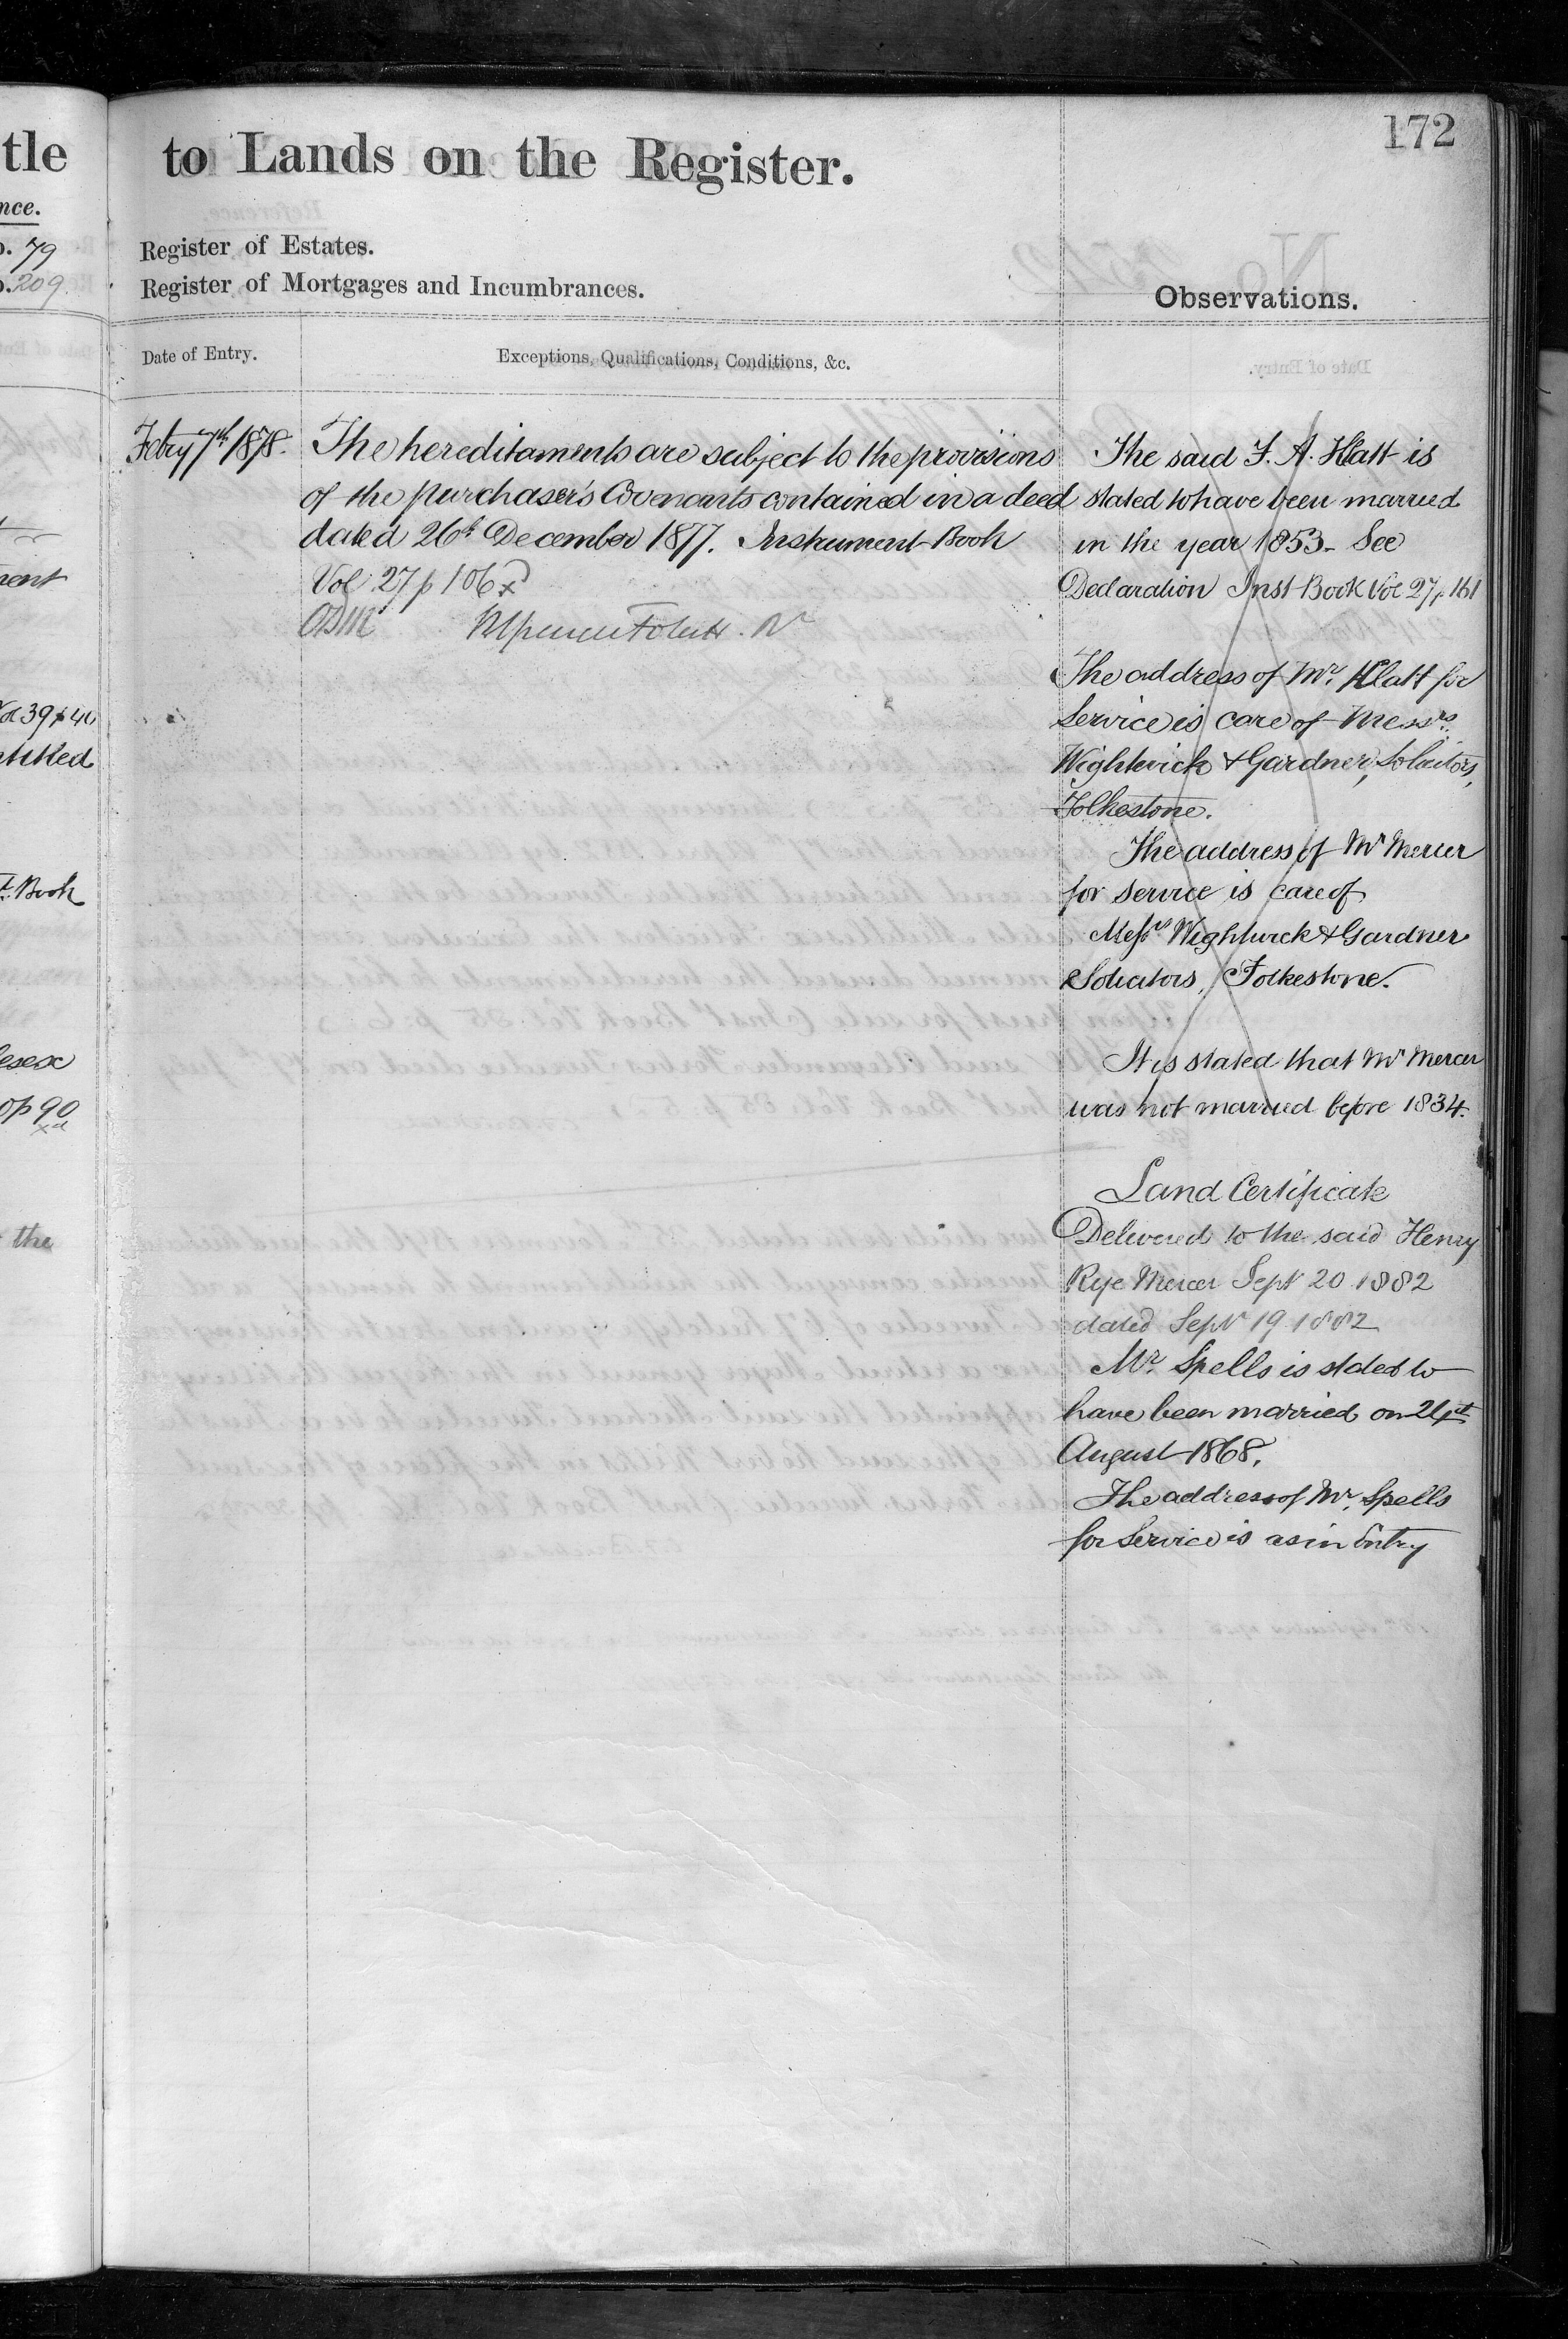 172
tle to Lands on the Register.
nce.
79
209
Register of Estates.
Register of Mortgages and Incumbrances.
Observations.
Date of Entry.
Exceptions, Qualifications, Conditions, &c.
Febry 7th 1878.
The hereditaments are subject to the provisions
of the purchaser's Covenants contained in a deed
dated 26th December 1877. Instrument Book
Vol: 27 p 106
The said F. A. Hlatt is
stated to have been married
in the year 1853. See
Declaration Inst Book Vol 27 p 161
The address of Mr. Hlatt for
Service is care of Messrs.
Wightwick & Gardner, Solicitors,
Folkestone.
The address of Mr Mercer
for service is care of
Messrs Wightwick & Gardner
Solicitors, Folkestone.
It is stated that Mr Mercer
was not married before 1834.
Land Certificate
Delivered to the said Henry
Rye Mercer Sept 20 1882
dated Sept 19 1882
Mr. Spells is stated to
have been married on 21st
August 1868.
The address of Mr. Spells
for Service is as in Entry
ment
39 p 40
Book
the
p 90